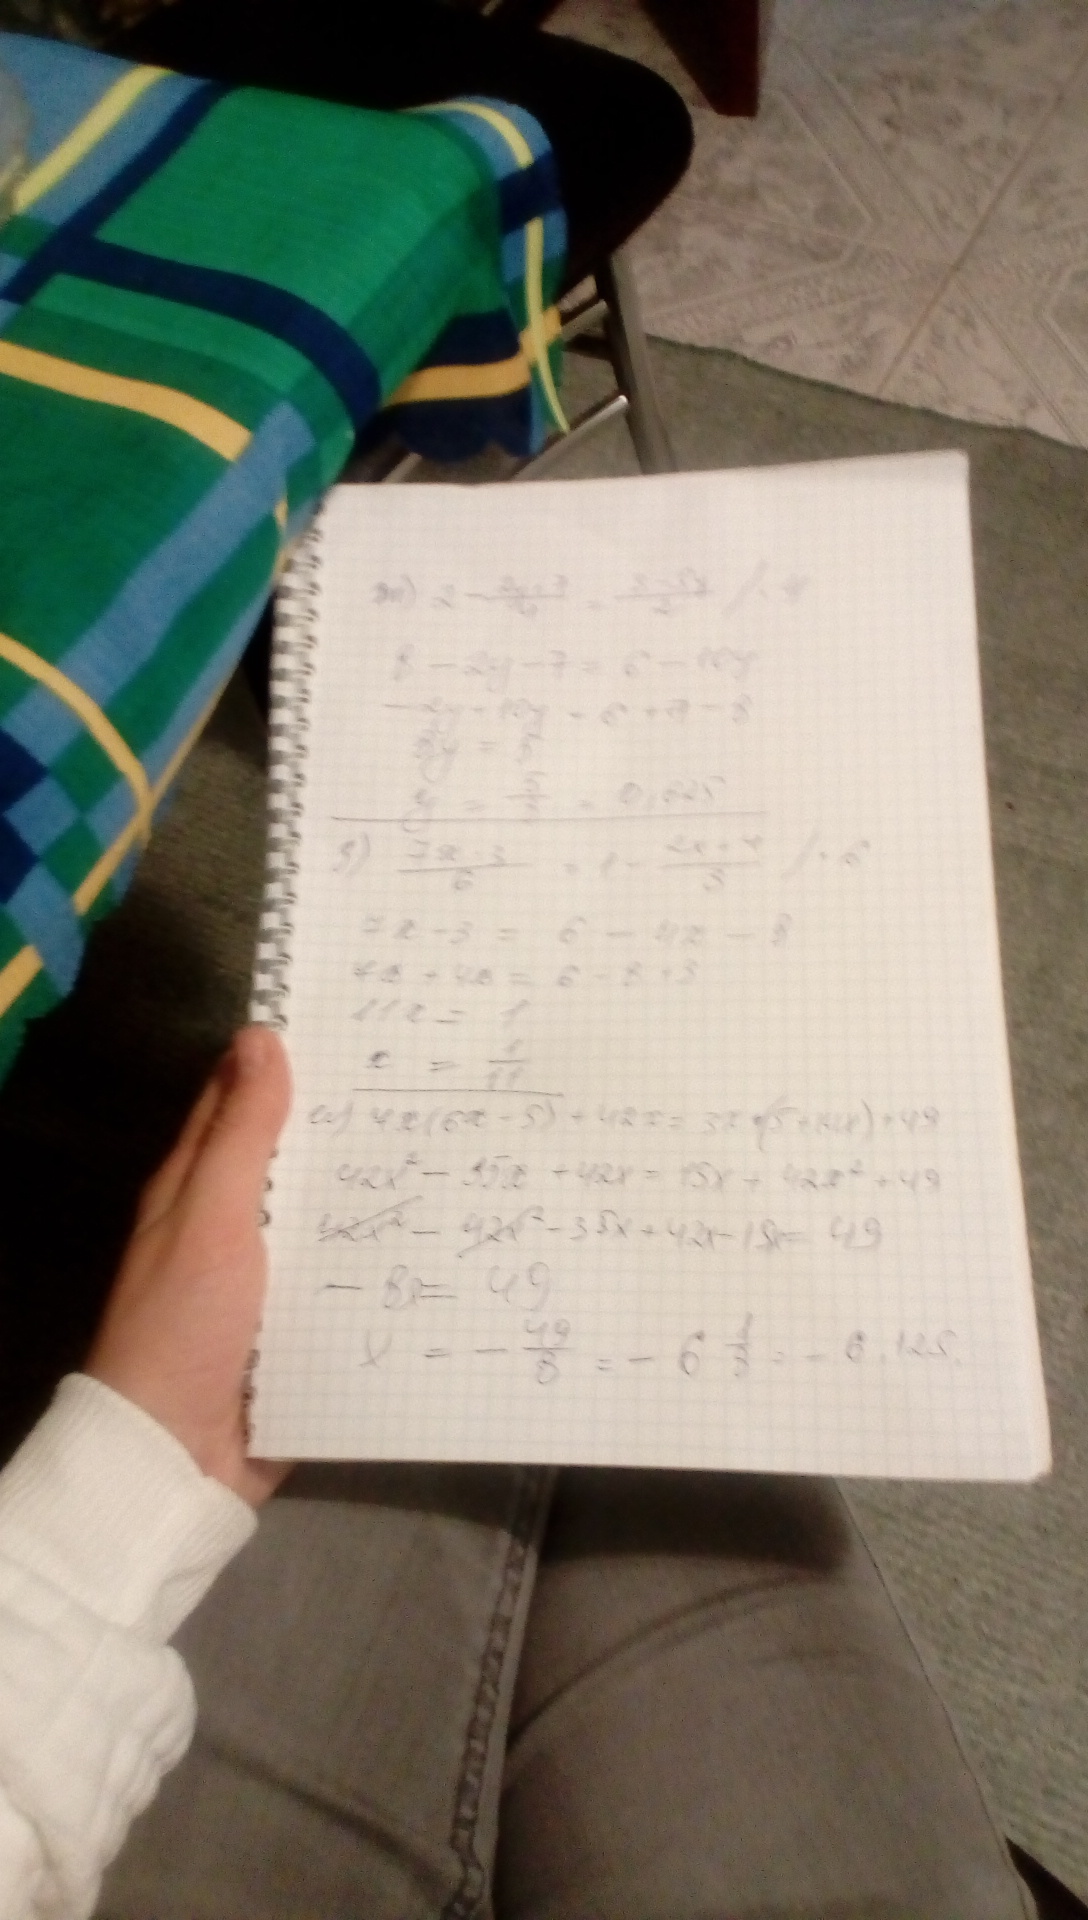 8 - 2y - 7 = 6 - 10y
-2y + 10y = 6 + 7 - 8
8y = 5
y = 5/8 = 0,625
7x - 3 / 6 = 1 - 2x + 4 / 3 / · 6
7x - 3 = 6 - 4x - 8
7x + 4x = 6 - 8 + 3
11x = 1
x = 1/11
7x(6x - 5) + 42x = 3x (5 + 14x) + 49
42x² - 35x + 42x = 15x + 42x² + 49
42x² - 42x² - 35x + 42x - 15x = 49
- 8x = 49
x = - 49/8 = - 6 1/8 = - 6,125.